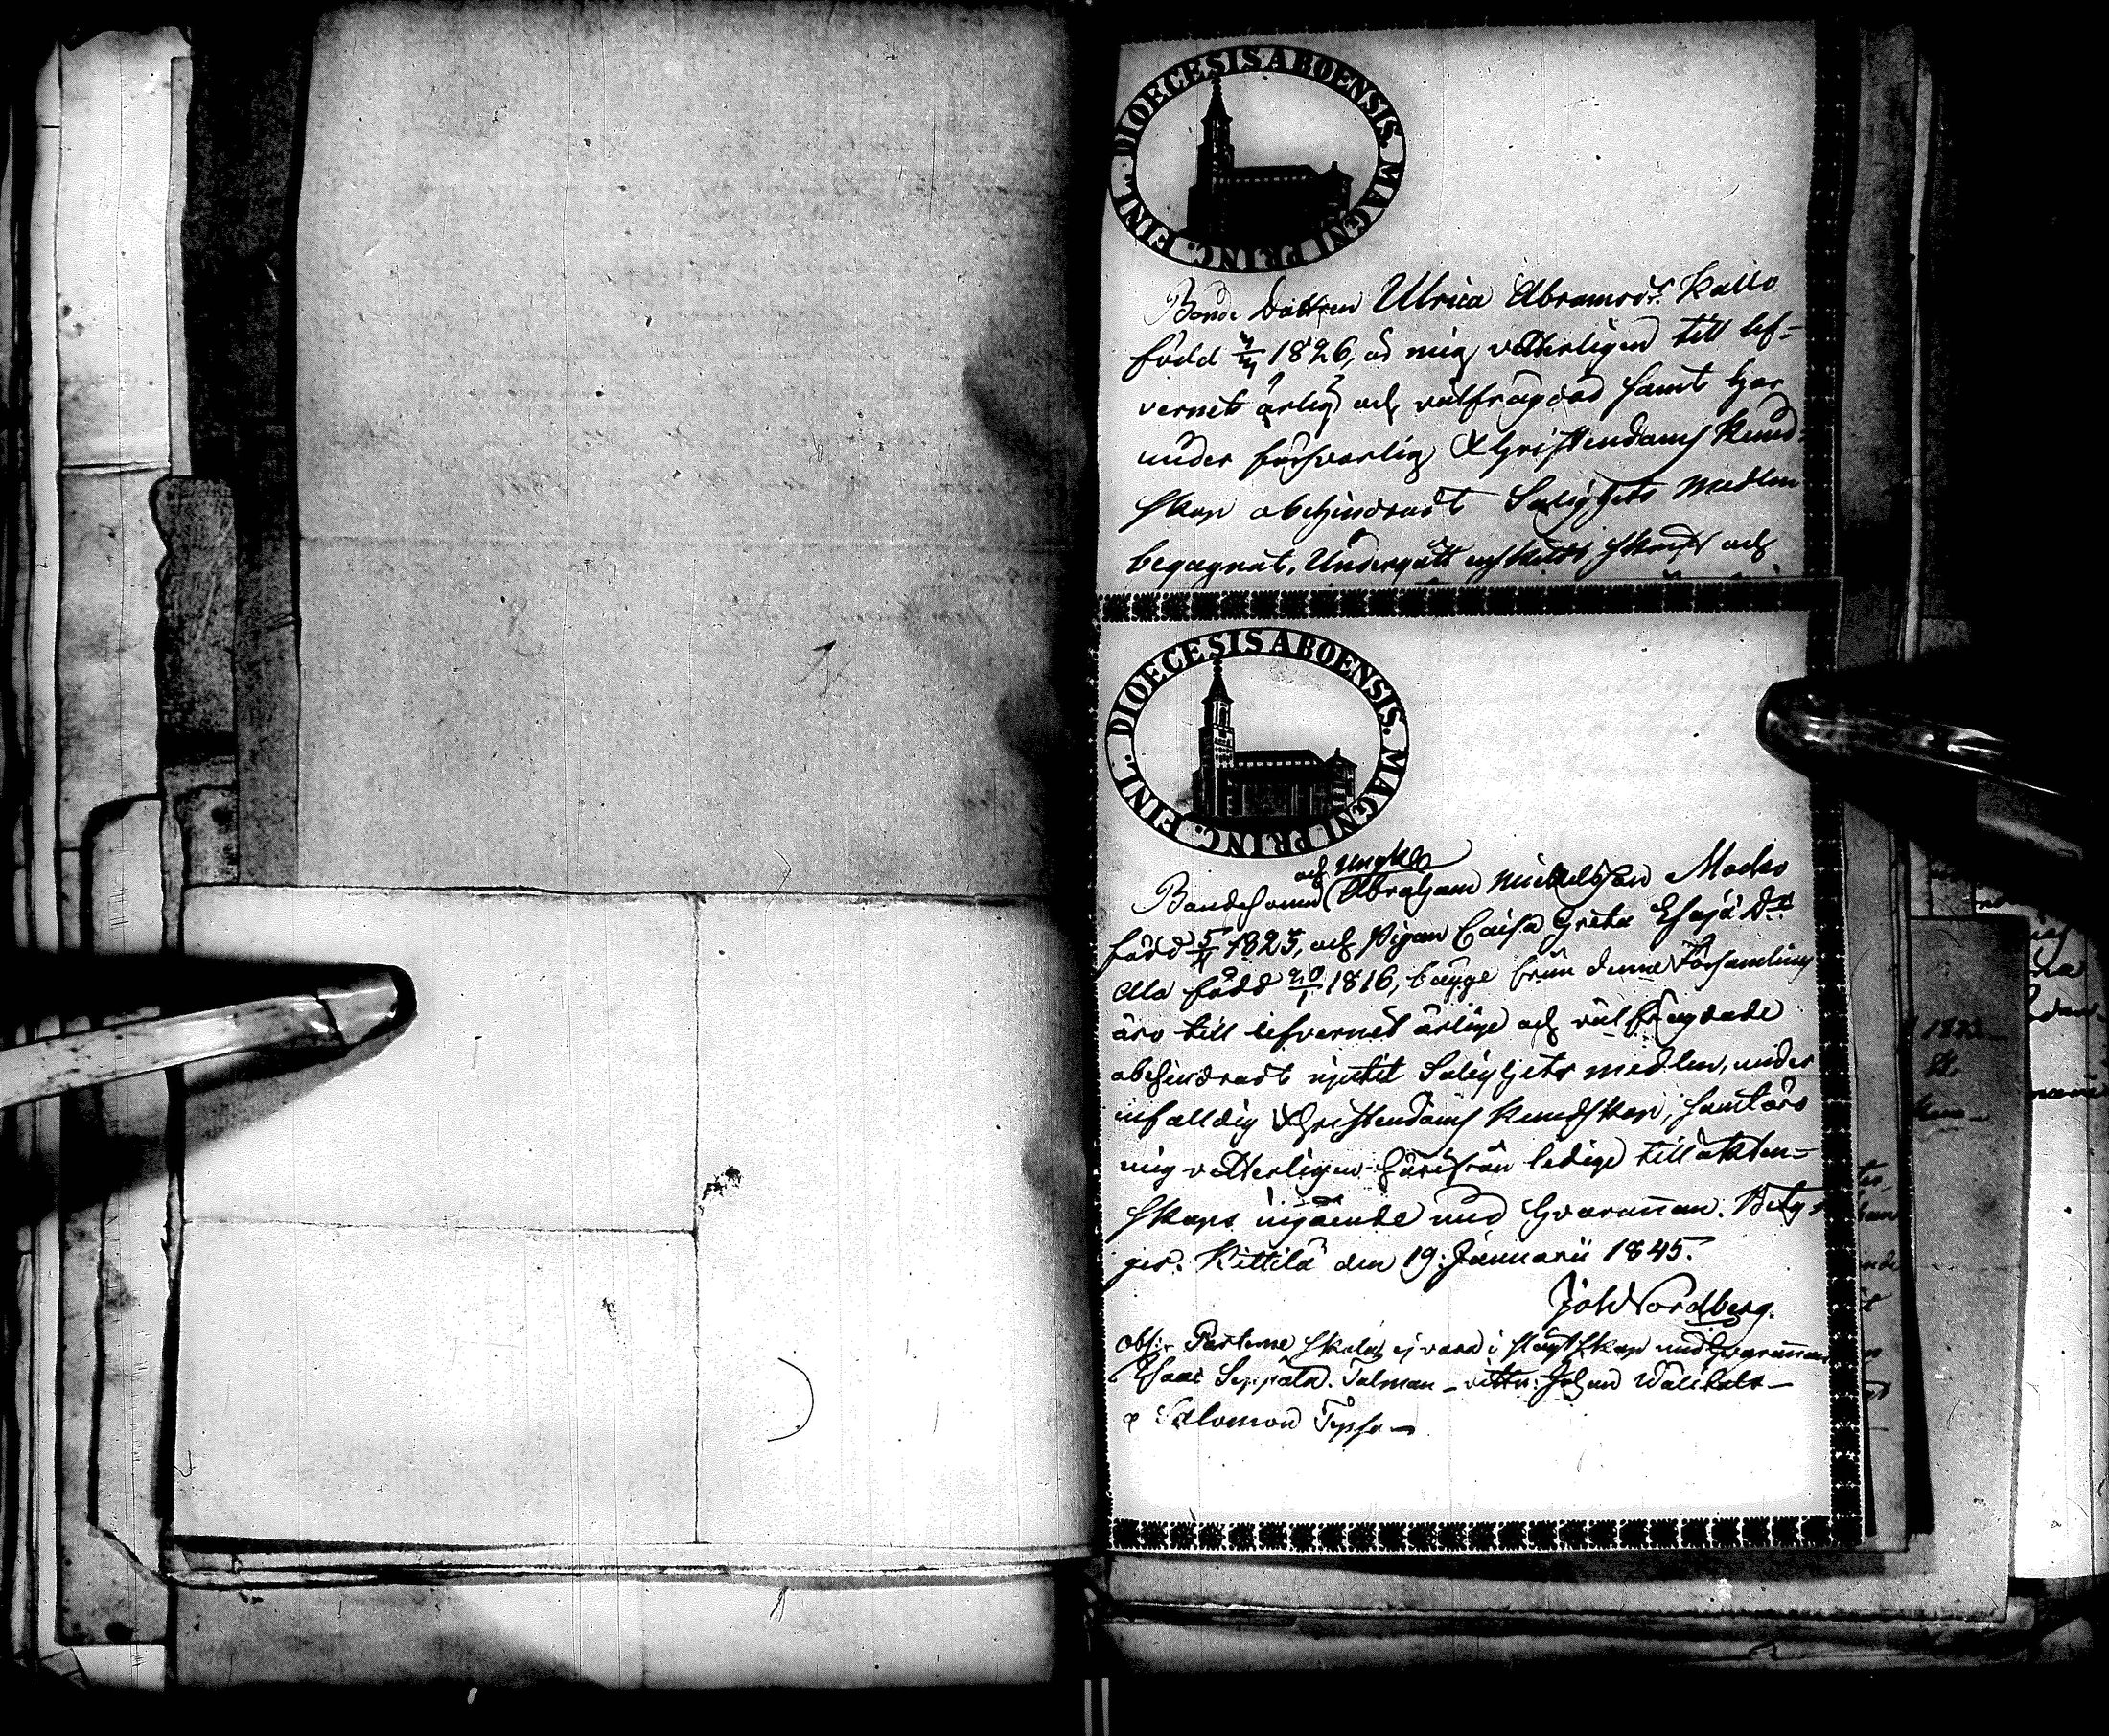 DIOECESIS ABOENSIS. MAGNI PRINC. FINL.
Bonde Dottren Ulrica Abramsdr. Kallo
född 1826, är mig vetterligen till lef-
vernet ärlig och välfrägdad samt har
under försvarlig Christendoms kund-
skap obehindradt Salighets medlen
begagnat, Undergått enskildt skrift och
DIOECESIS ABOENSIS. MAGNI PRINC. FINL.
och
Bondesonen Abraham Michelsson
född 5/4 1825, och Pigan Caisa Greta Esajæ Dr.
Ala född 20/1 1816, bägge från denna Församling
äro till lefvernet ärlige och välfrägdade
obehindradt njutit Salighets medlen, under
enfalldig Christendoms kundskap, samt äro
mig vetterligen härifrån ledige till äkten-
skaps ingående med hvarannan. Betyg
ger. Kittilä den 19. Januarii 1845.
Joh Nordberg.
obs: Parterne skola ej vara i slägtskap med hvarannan
Esaac Seppälä. Talman - vittn: Johan
o Salomon
1823